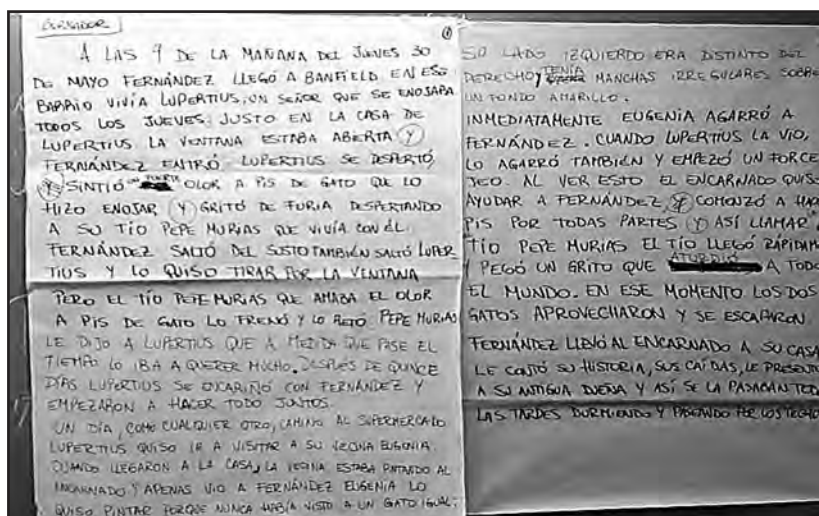 BORRADOR
①
A LAS 9 DE LA MAÑANA DEL JUEVES 30
DE MAYO FERNÁNDEZ LLEGÓ A BANFIELD EN ESE
BARRIO VIVÍA LUPERTIUS, UN SEÑOR QUE SE ENOJABA
TODOS LOS JUEVES. JUSTO EN LA CASA DE
LUPERTIUS LA VENTANA ESTABA ABIERTA Y
FERNÁNDEZ ENTRÓ. LUPERTIUS SE DESPERTÓ,
Y SINTIÓ UN FUERTE OLOR A PIS DE GATO QUE LO
HIZO ENOJAR Y GRITÓ DE FURIA DESPERTANDO
A SU TÍO PEPE MURIAS QUE VIVÍA CON ÉL.
FERNÁNDEZ SALTÓ DEL SUSTO TAMBIÉN SALTÓ LUPER
TIUS Y LO QUISO TIRAR POR LA VENTANA
PERO EL TÍO PEPE MURIAS QUE AMABA EL OLOR
A PIS DE GATO LO FRENÓ Y LO RETÓ. PEPE MURIAS
LE DIJO A LUPERTIUS QUE A MEDIDA QUE PASE EL
TIEMPO LO IBA A QUERER MUCHO. DESPUÉS DE QUINCE
DÍAS LUPERTIUS SE ENCARIÑÓ CON FERNÁNDEZ Y
EMPEZARON A HACER TODO JUNTOS.
UN DÍA, COMO CUALQUIER OTRO, CAMINO AL SUPERMERCADO
LUPERTIUS QUISO IR A VISITAR A SU VECINA EUGENIA.
CUANDO LLEGARON A LA CASA, LA VECINA ESTABA PINTANDO AL
ENCARNADO Y APENAS VIO A FERNÁNDEZ EUGENIA LO
QUISO PINTAR PORQUE NUNCA HABÍA VISTO A UN GATO IGUAL:
SU LADO IZQUIERDO ERA DISTINTO DEL
DERECHO, Y TENÍA MANCHAS IRREGULARES SOBRE
UN FONDO AMARILLO.
INMEDIATAMENTE EUGENIA AGARRÓ A
FERNÁNDEZ. CUANDO LUPERTIUS LA VIO,
LO AGARRÓ TAMBIÉN Y EMPEZÓ UN FORCE
JEO. AL VER ESTO EL ENCARNADO QUISO
AYUDAR A FERNÁNDEZ Y COMENZÓ A HA
PIS POR TODAS PARTES Y ASÍ LLAMAR A
TÍO PEPE MURIAS EL TÍO LLEGÓ RÁPIDAM
Y PEGÓ UN GRITO QUE ATURDIÓ A TODO
EL MUNDO. EN ESE MOMENTO LOS DOS
GATOS APROVECHARON Y SE ESCAPARON
FERNÁNDEZ LLEVÓ AL ENCARNADO A SU CASA
LE CONTÓ SU HISTORIA, SUS CAÍDAS, LE PRESENTÓ
A SU ANTIGUA DUEÑA Y ASÍ SE LA PASABAN TODA
LAS TARDES DURMIENDO Y PASEANDO POR LOS TECHO